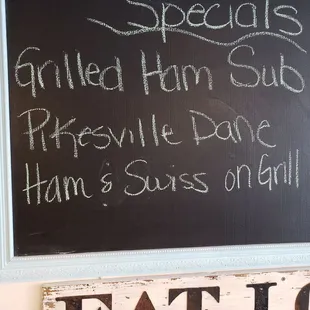 Specials
Grilled Ham Sub
Pikesville Dane
Ham & Swiss on Grill
EAT LO